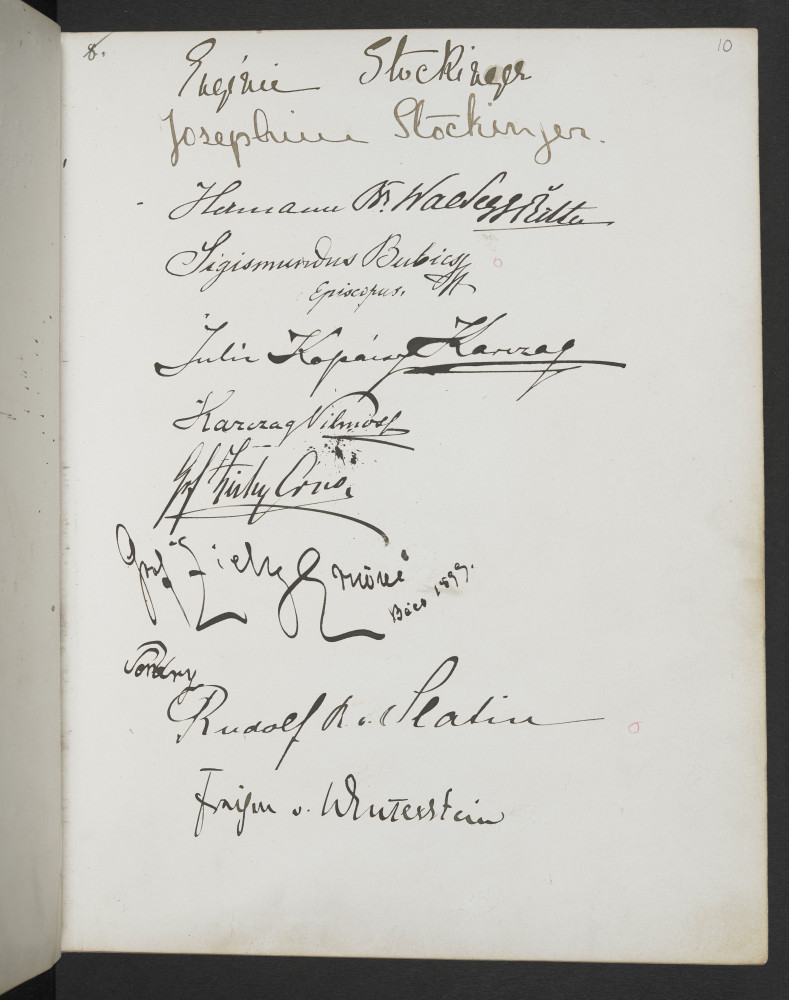 8. 10
Eugénie Stockinger
Josephine Stockinger.
Hermann
Sigismundus Bubics
Episcopus.
Julie Kopácsy Karczag
Karczag Vilmos
Gróf Zichy
Gróf Zichy
Bécs 1899.
Rudolf R. v. Slatin
v. Winterstein